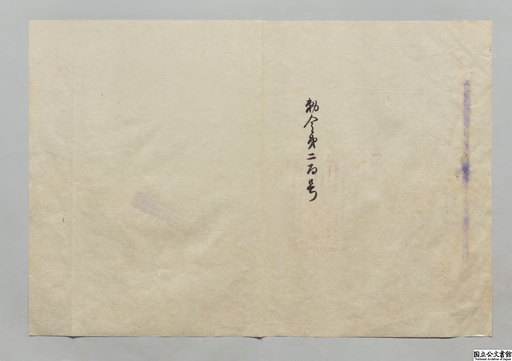 勅令第二百号
国立公文書館
National Archives of Japan